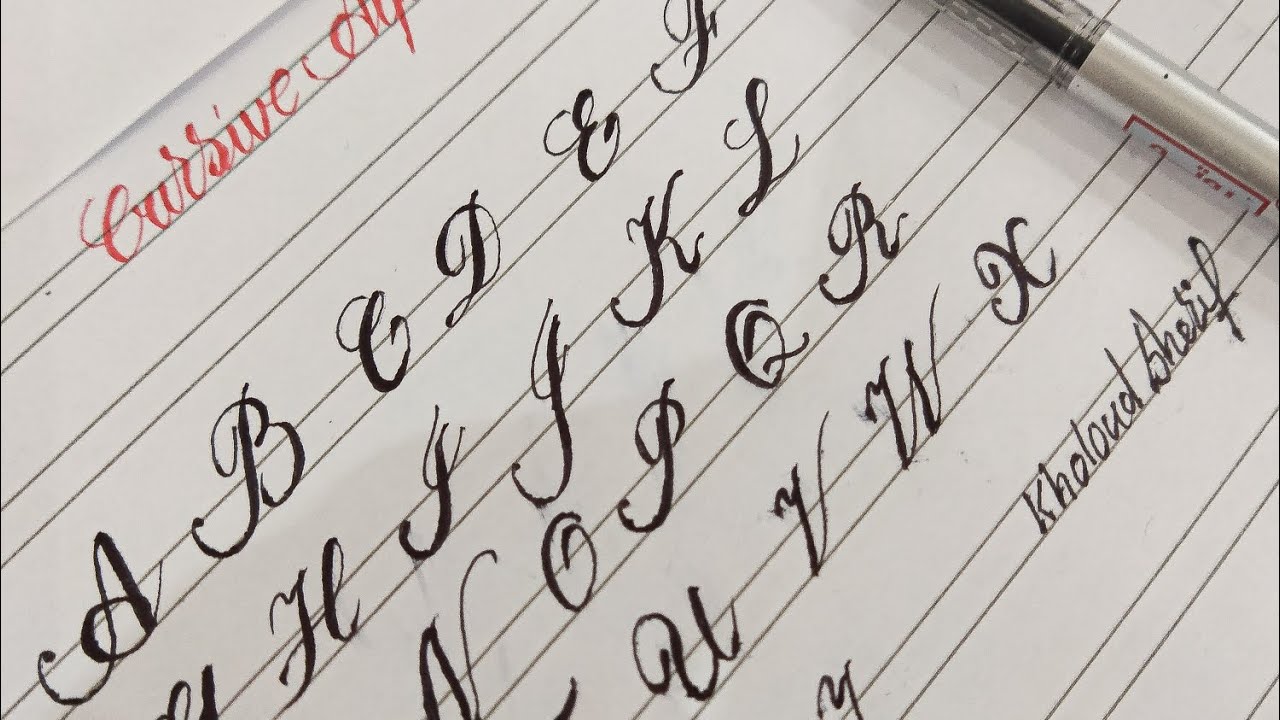 Cursive
A B C D E F
H I J K L
N O P Q R
U V W X
y
Kholoud Sherif